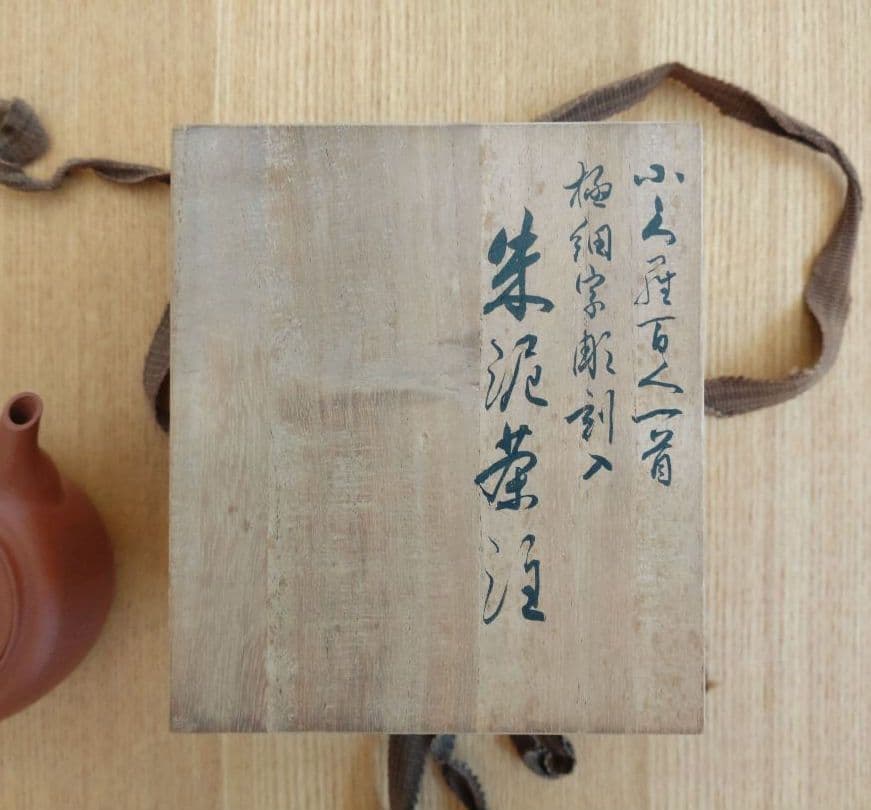 小久羅百人一首
極細字彫刻入
朱泥茶注